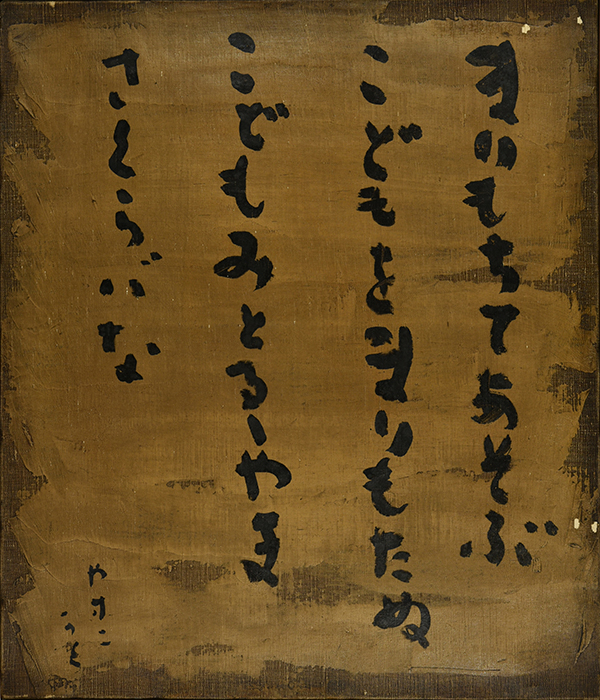 まりもちてあそぶ
こどもをまりもたぬ
こどもみとるゝやま
さくらばな